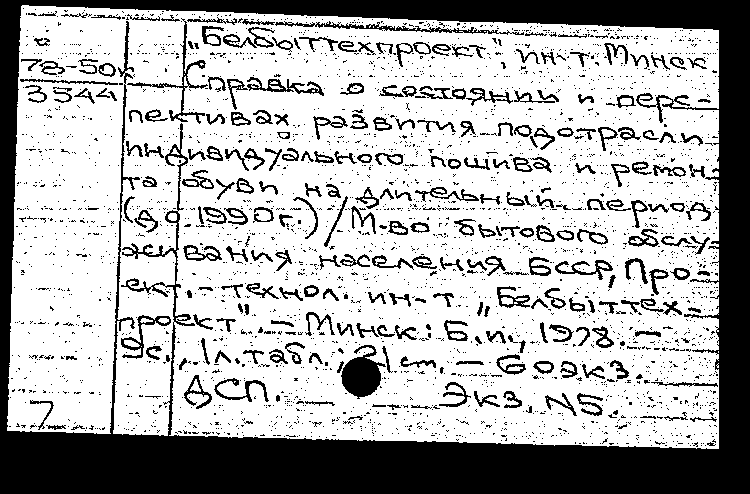 с
"Белбыттехпроект", ин-т. Минск.
78-50к
3544
Справка о состоянии и перс-
пективах развития подотрасли
индивидуального пошива и ремон-
та обуви на длительный период
(до 1990г.) / М-во бытового обслу-
живания населения БССР, Про-
ект.-технол. ин-т "Белбыттех-
проект". — Минск: Б.и., 1978. —
9с., 1л.табл.; 21см. — 60экз.
ДСП. — Экз. N5.
7